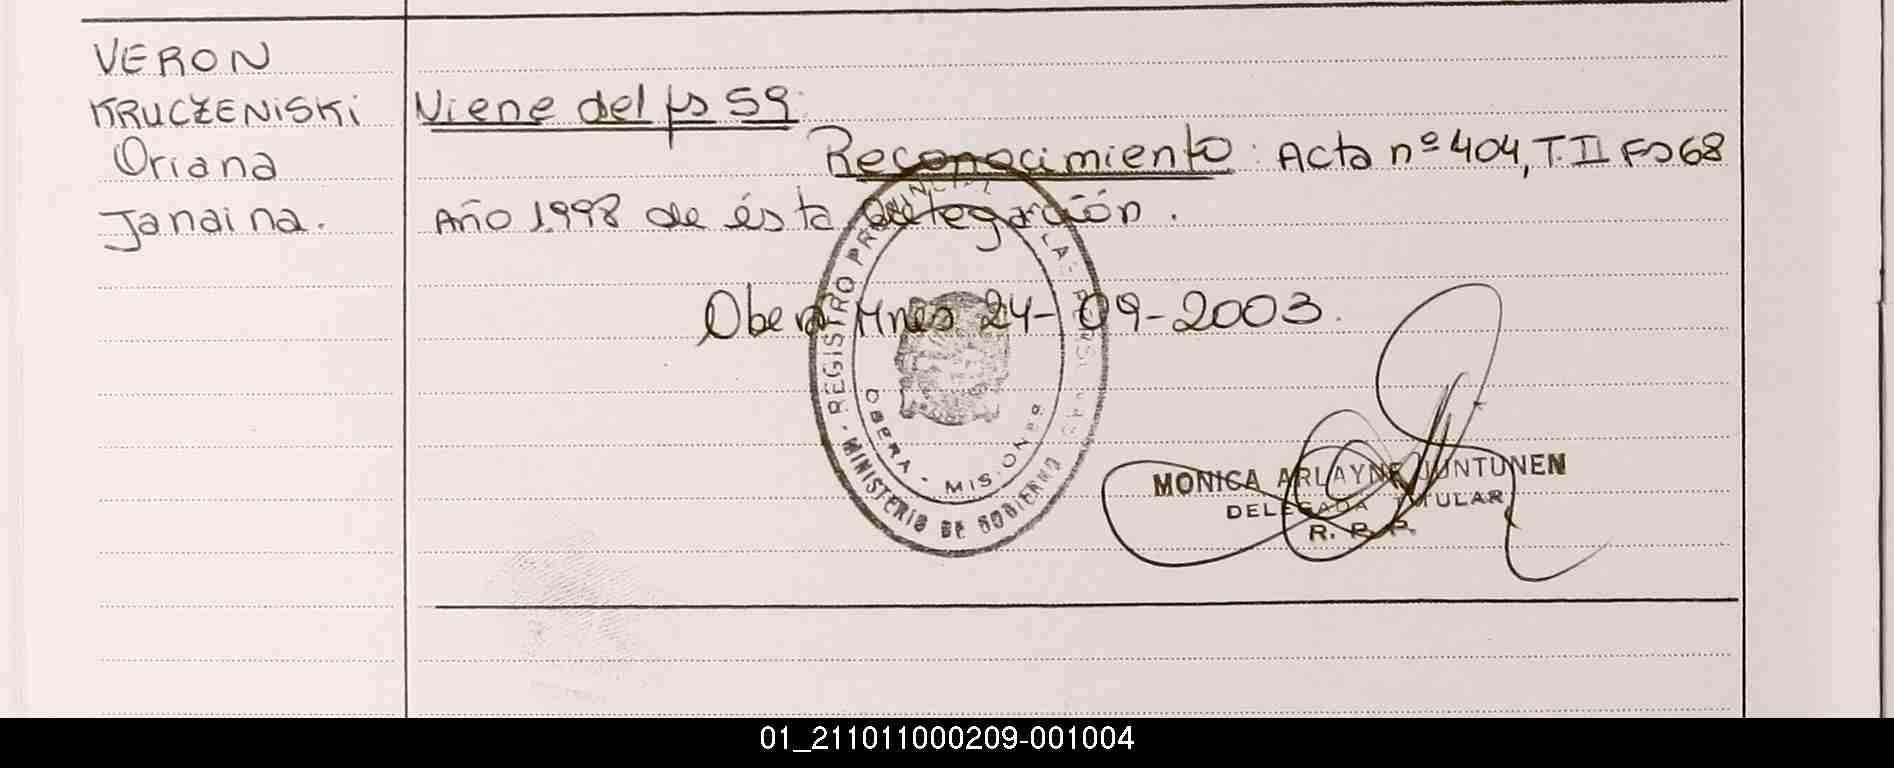 VERON
KRUCZENISKI
Oriana
Janaina.
Viene del fs 59.
Reconocimiento: Acta nº 404, T.II Fs 68
Año 1.998 de ésta delegación.
Obera Mnes 24-09-2003.
REGISTRO PROVINCIAL DE LAS PERSONAS
- MINISTERIO DE GOBIERNO
OBERA - MISIONES
MONICA ARLAYNE JUNTUNEN
DELEGADA TITULAR
R. P. P.
01_211011000209-001004